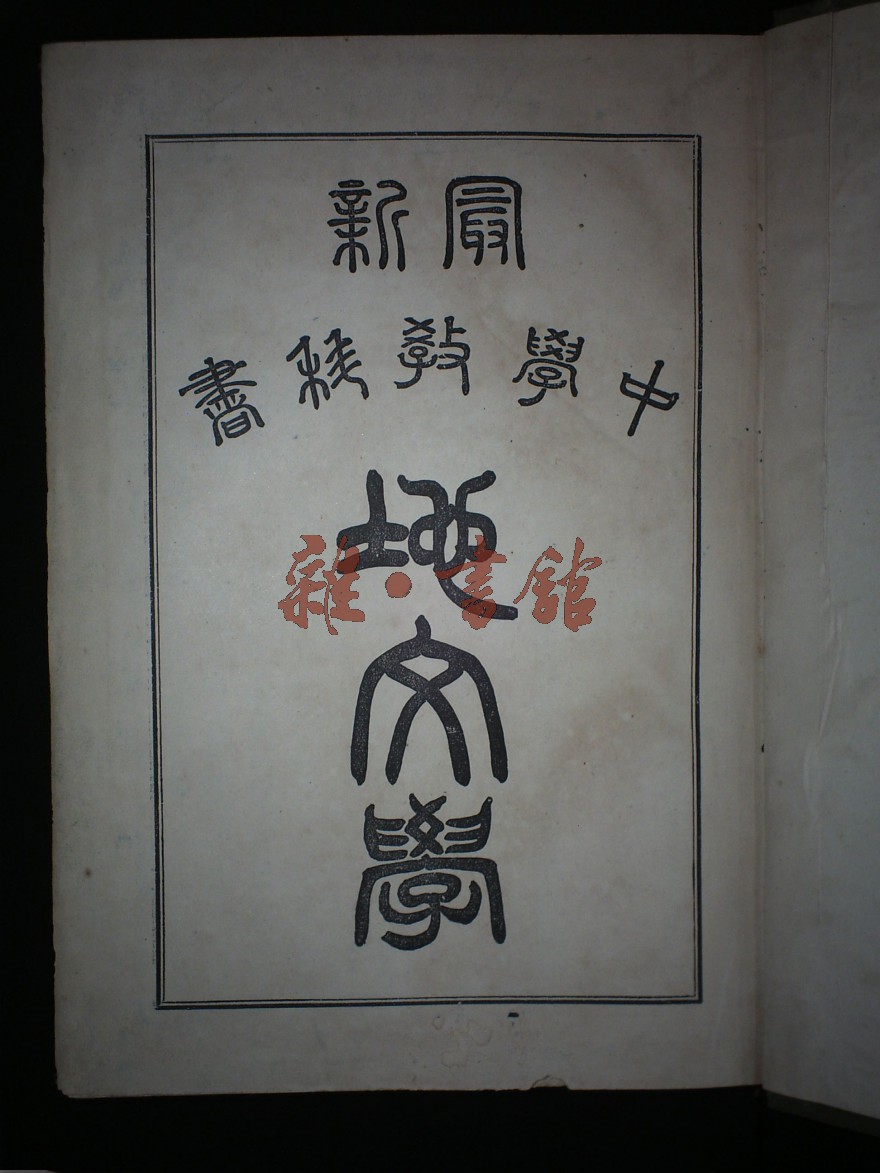 最新
中學教科書
地文學
雜·書館